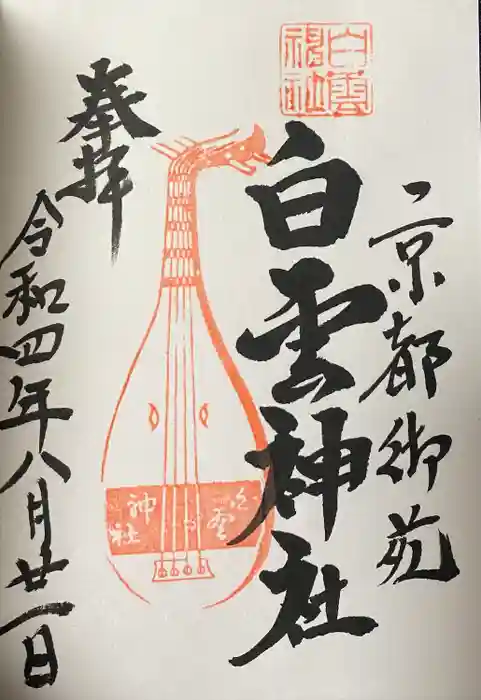 白雲神社
京都御苑
白雲神社
奉拝
白雲
神社
令和四年八月廿一日